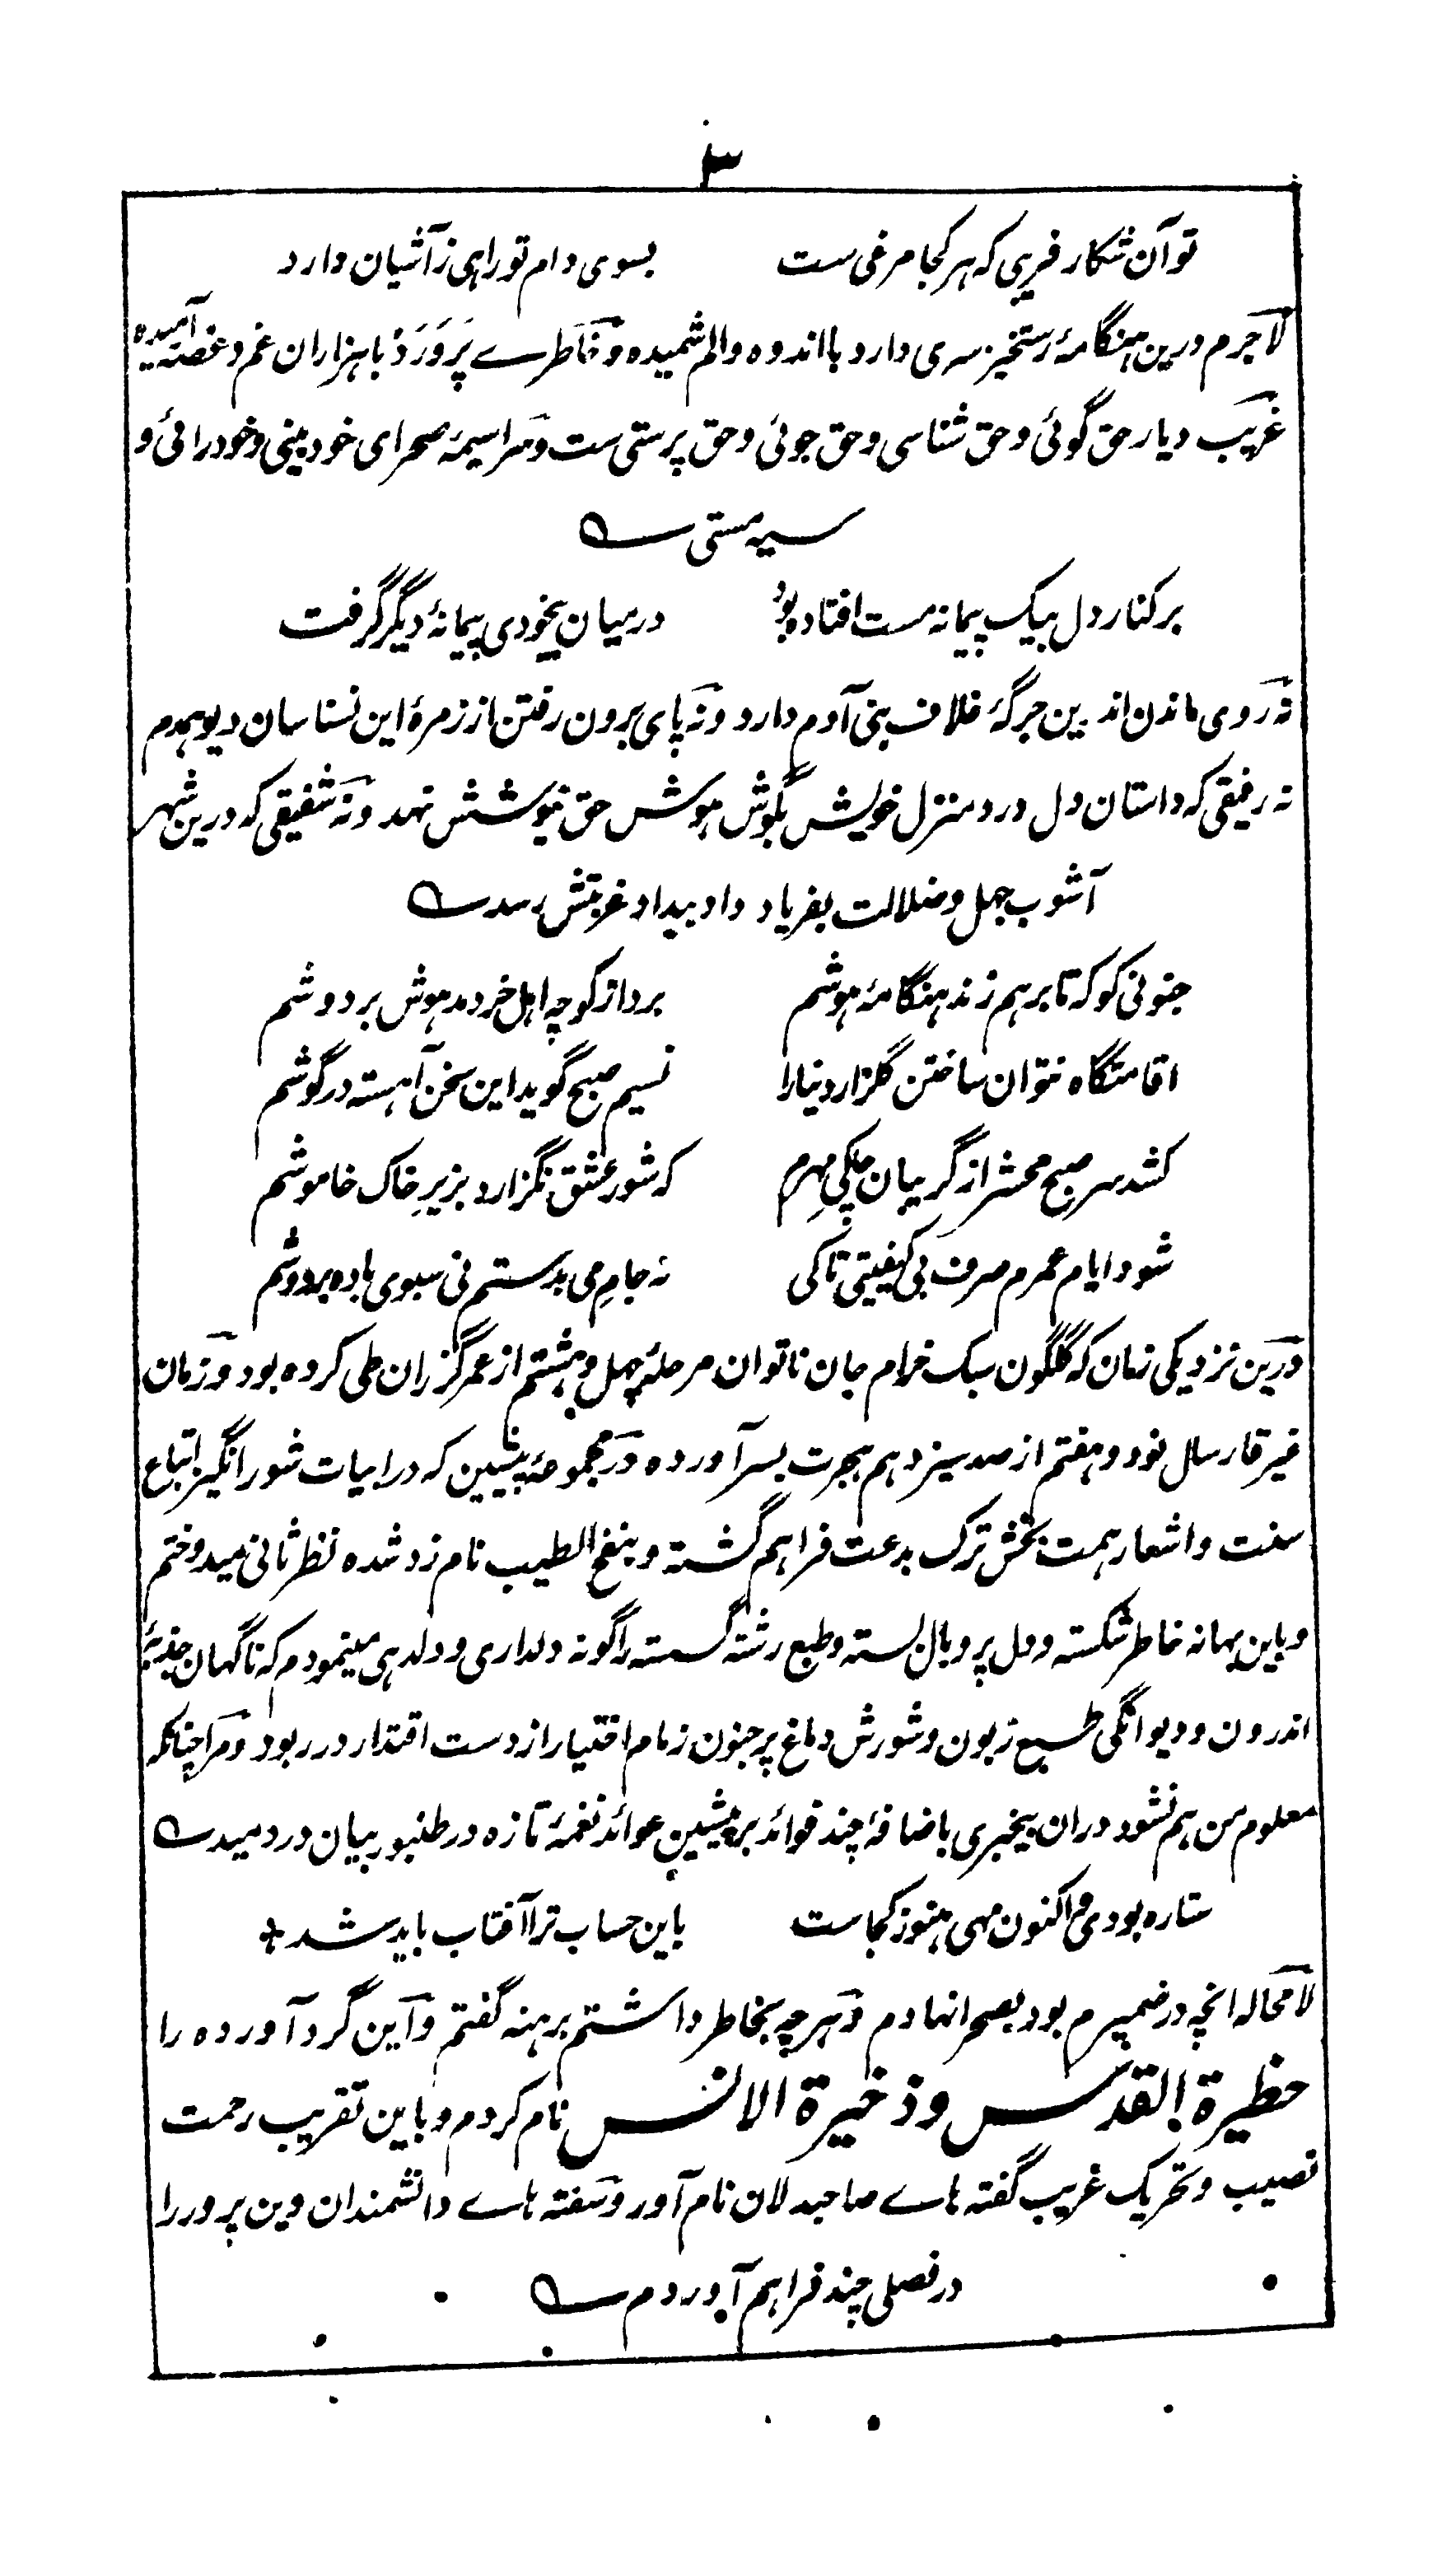 ۳
تو آن شکار فریبی که هر کجا مرغی ست بسوی دام تو راهی ز آشیان دارد
لاجرم درین هنگامۀ رستخیز سری دارد با اندوه والم شمیده و خاطرے پرورد با هزاران غم و غصه آمیده
غریب دیار حق گوئی و حق شناسی و حق جوئی و حق پرستی ست و سراسیمۀ صحرای خود بینی و خودرائی و
سیه مستی
بر کنار دل بیک پیمانه مست افتاده بود در میان بیخودی پیمانۀ دیگر گرفت
نه روی ماندن اندرین جرگۀ خلاف بنی آدم دارد و نه پای برون رفتن از زمرۀ این نسناسان دیو همدم
نه رفیقی که داستان دل درد منزل خویش بگوش هوش حق نیوشش نهد و نه شفیقی که درین شهر
آشوب جهل و ضلالت بفریاد داد بیداد غربتش رسد
جنونی کو که تا برهم زند هنگامۀ هوشم برد از کوچه اهل خرد مدهوش بر دوشم
اقامتگاه نتوان ساختن گلزار دنیا را نسیم صبح گوید این سخن آهسته در گوشم
کشد سر صبح محشر از گریبان چاکیِ مهرم که شور عشق نگزارد بزیرِ خاک خاموشم
شود ایام عمرم صرف بی کیفیتی تا کی نه جامِ می بدستم نی سبوی باده بر دوشم
درین نزدیکی زمان که گلگون سبک خرام جان ناتوان مرحلۀ چهل و هشتم از عمر گزران طی کرده بود و زمان
غیر قار سال نود و هفتم از صد سیزدهم هجرت بسر آورده در مجموعۀ پیشین که در ابیات شورانگیز اتباع
سنت و اشعار همت بخش ترک بدعت فراهم گشته و بنفح الطیب نام زد شده نظر ثانی میدوختم
و باین بهانه خاطر شکسته و دل پر و بال بسته و طبع رشته گسسته را گونه دلداری و دلدهی مینمودم که ناگهان جذبۀ
اندرون و دیوانگی طبع زبون و شورش دماغ پر جنون زمام اختیار از دست اقتدار در ربود و مرا چنانکه
معلوم من هم نشود دران بیخبری باضافۀ چند فوائد بر پیشین عوائد نغمۀ تازه در طنبور بیان در دمید
ستاره بودی و اکنون مهی هنوز کجاست باین حساب ترا آفتاب باید شد
لامحاله انچه در ضمیرم بود بصحرا نهادم و هر چه بخاطر داشتم برهنه گفتم و این گرد آورده را
حظیرة القدس و ذخیرة الانس نام کردم و باین تقریب رحمت
نصیب و تحریک غریب گفته هاے صاحبدلان نام آور و سفته هاے دانشمندان دین پرور را
در فصلی چند فراهم آوردم